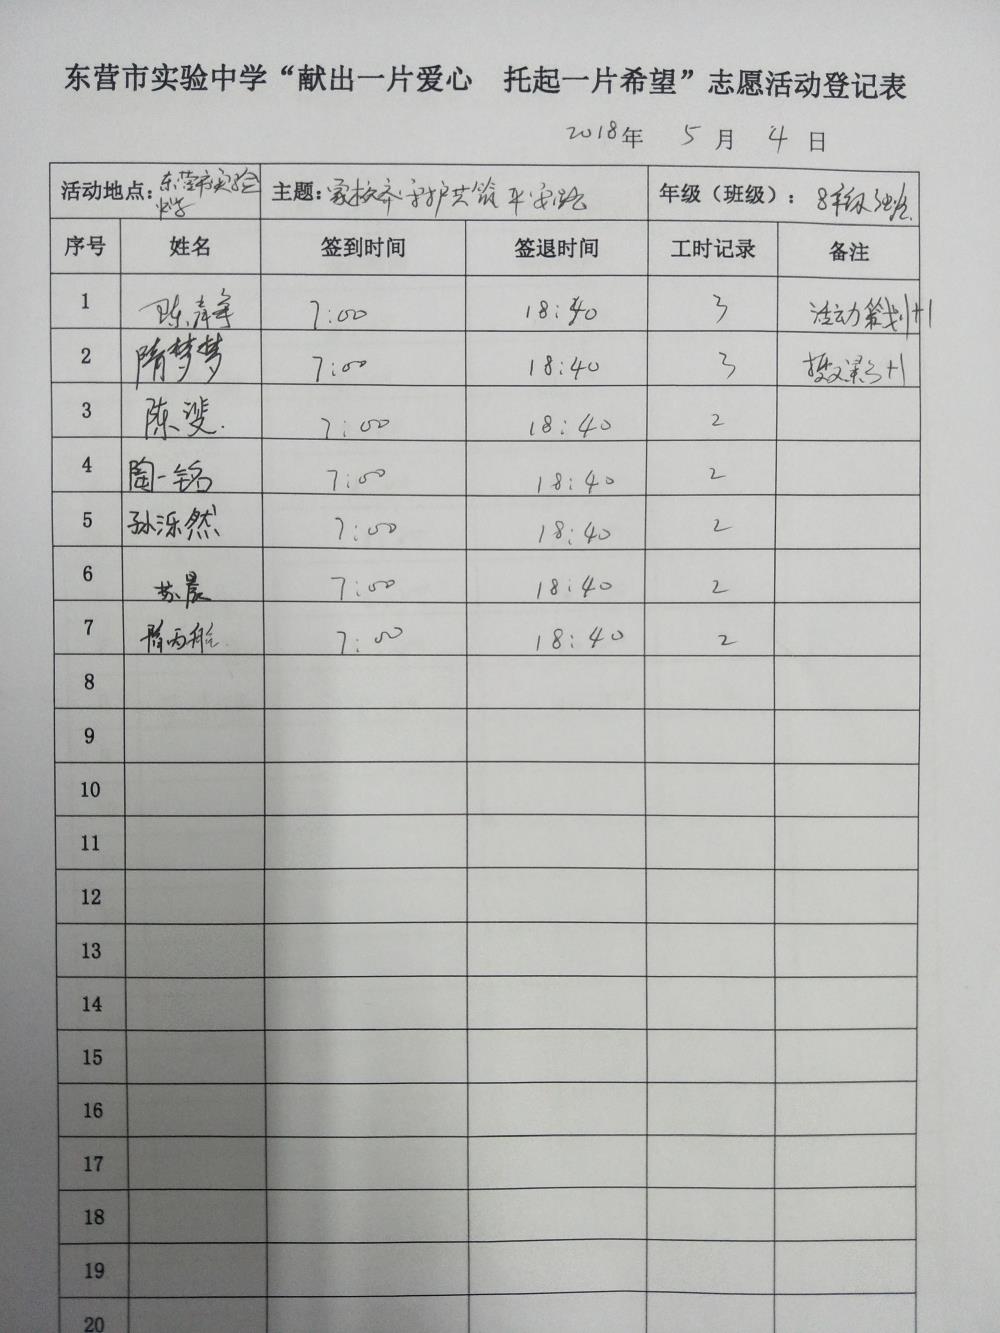 东营市实验中学“献出一片爱心 托起一片希望”志愿活动登记表
2018年 5月 4日
活动地点:东营市实验中学 主题:家校齐守护共筑平安路 年级（班级）:8年级
序号 姓名 签到时间 签退时间 工时记录 备注
1 陈彦军 7:00 18:40 3 活动策划+1
2 隋梦梦 7:00 18:40 3 摄影+1
3 陈斐 7:00 18:40 2
4 陶一铭 7:00 18:40 2
5 孙泺然 7:00 18:40 2
6 苏晨 7:00 18:40 2
7 7:00 18:40 2
8
9
10
11
12
13
14
15
16
17
18
19
20